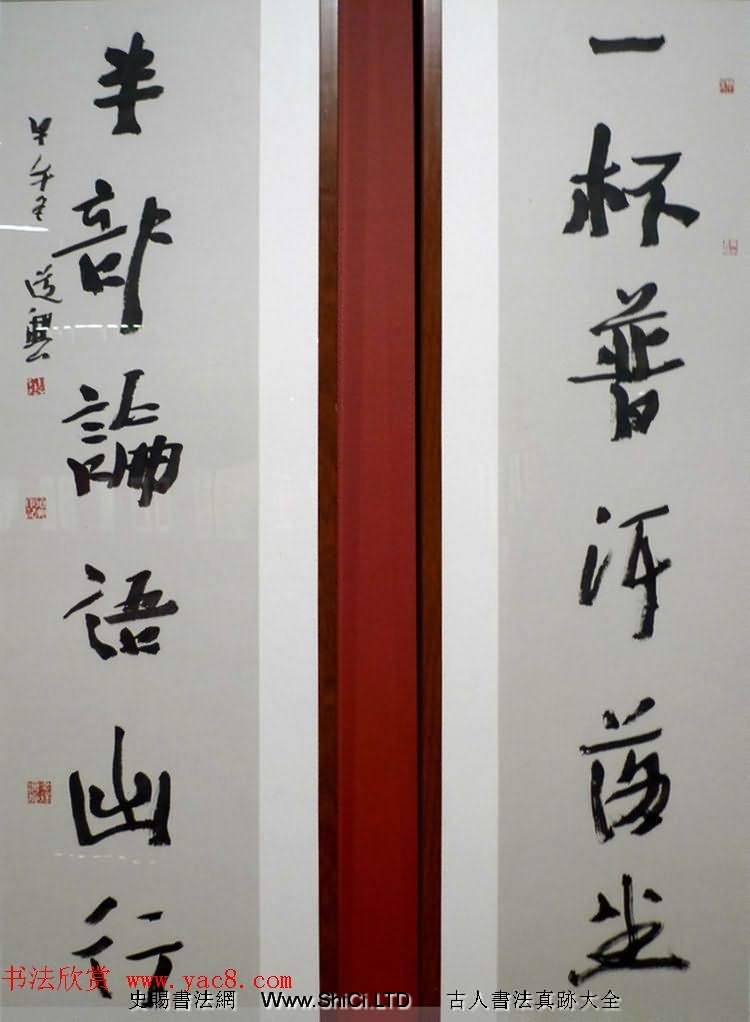 一杯普洱落坐
半部論語出行
道興
书法欣赏 www.yac8.com
史賜書法網 Www.ShiCi.LTD 古人書法真跡大全